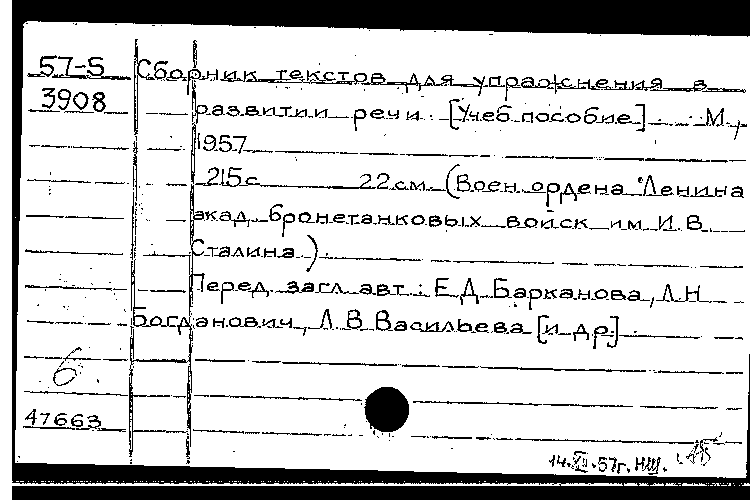 57-5 Сборник текстов для упражнения в
3908 развитии речи. [Учеб. пособие]. М.,
1957
215с 22см. (Воен. ордена Ленина
акад. бронетанковых войск им И.В.
Сталина).
Перед загл. авт.: Е.Д. Барканова, Л.Н.
Богданович, Л.В. Васильева [и др.].
6.
47663
14.XII.57г. НШ.